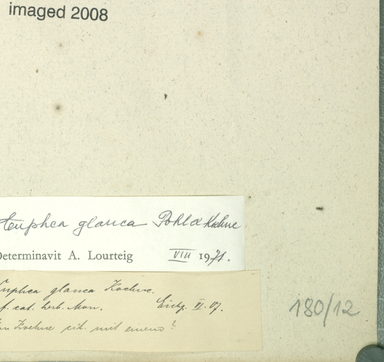 imaged 2008
Cuphea glauca Pohl ex Koehne
Determinavit A. Lourteig VIII 1971.
Cuphea glauca Koehne.
f. cat. herb. Mon. VI. 07.
Koehne cit. mit
180/12